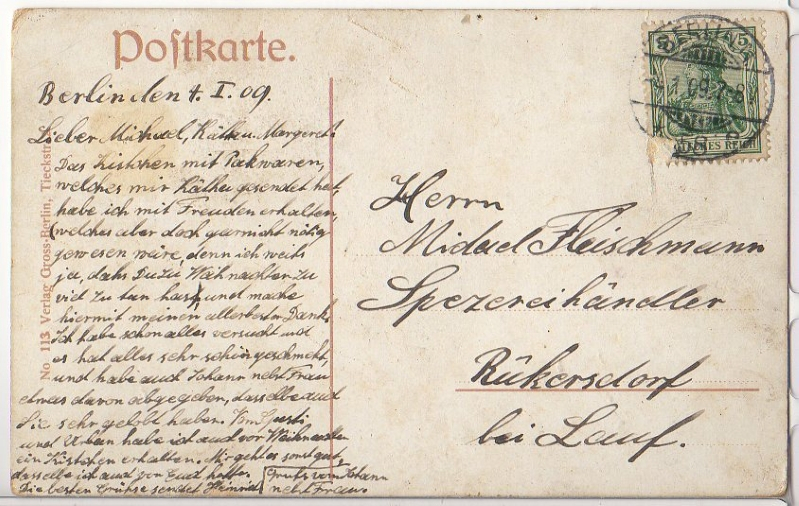 Postkarte.
Berlin den 4. I. 09.
Lieber Michael, Käthe u. Margeret!
Das Kistchen mit Pakwaren,
welches mir Käthe gesendet hat,
habe ich mit Freuden erhalten,
welches aber doch garnicht nötig
gewesen wäre, denn ich weis
ja, dahs Du zu Weihnachten zu
viel zu tun hast, und mache
hiermit meinen allerbesten Dank.
Ich habe schon alles versucht und
es hat alles sehr schön geschmekt,
und habe auch Johann nebst Frau
etwas davon abgegeben, dasselbe auch
Sie sehr gelobt haben. Vom
und Urban habe ich auch vor Weihnachten
ein Kistchen erhalten. Mir geht es sonst gut,
dasselbe ich auch von Euch hoffe.
Die besten Grühse sendet Heinrich
Gruhs vom Johann
nebst Frau.
No. 113 Verlag Gross-Berlin, Tieckstr.
BERLIN
5 5
1. 09. 7-8
DEUTSCHES REICH
Herrn
Michael Fleischmann
Spezereihändler
Rükersdorf
bei Lauf.